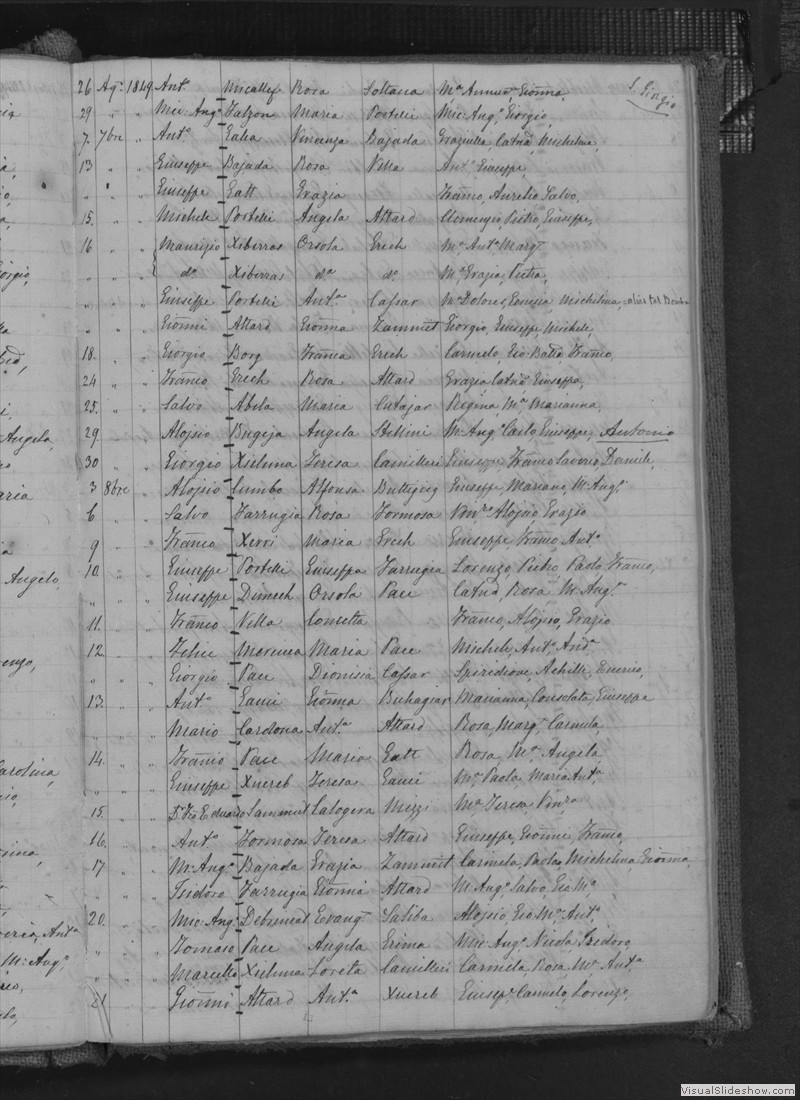 S. Giorgio
26 Ag. 1849 Ant.o Micallef Rosa Soltana M.a Annun. Giōnna,
29 " " Mic: Ang.o Falzon Maria Portelli Mic: Ang.o Giorgio,
7. 7bre " Ant.o Galea Vincenza Bajada Graziulla Catna Michelina,
13 " " Giuseppe Bajada Rosa Vella Ant.o Giuseppe,
" " " Giuseppe Gatt Grazia Franco, Aurelio Salvo,
15. " " Michele Portelli Angela Attard Pietro, Giuseppe,
16 " " Maurizio Xiberras Orsola Grech M.a Ant.a Marg.t
" " " do. Xiberras da. do. M.a Grazia, Pietra,
" " " Giuseppe Portelli Ant.a Cassar M.a Dolores, Michelina, alias tal
" " " Giōnni Attard Giōnna Zammit Giorgio, Giuseppe, Michele,
18. " " Giorgio Borg Franca Grech Carmelo, Gio: Batta Franco,
24 " " Franco Grech Rosa Attard Grazia Catna Giuseppa,
25. " " Salvo Abela Maria Cutajar Regina, M.a Marianna,
29 " " Aloisio Bugeja Angela Stellini M: Ang.o Carlo, Giuseppe, Antonio
30 " " Giorgio Xicluna Teresa Camilleri Giuseppe Franco Saverio, Daniele,
3 8bre " Aloisio Cumbo Alfonsa Buttigieg Giuseppe, Mariano, M: Ang.o
6 " " Salvo Farrugia Rosa Formosa Vin.zo Aloisio Grazio
9 " " Franco Xerri Maria Grech Giuseppe Franco Ant.o
10. " " Giuseppe Portelli Giuseppa Farrugia Lorenzo, Pietro Paolo, Franco,
" " " Giuseppe Dimech Orsola Pace Catna, Rosa M: Ang.a
11. " " Franco Vella Concetta Franco, Aloisio, Grazio
12. " " Felice Mercieca Maria Pace Michele, Ant.o And.a
" " " Giorgio Pace Dionisia Cassar Spiridione, Achille, Enerico,
13. " " Ant.o Gauci Giōnna Buhagiar Marianna, Consolata, Giuseppa
" " " Mario Cardona Ant.a Attard Rosa, Marg.t Carmela,
14. " " Franco Pace Maria Gatt Rosa, M.a Angela,
" " " Giuseppe Xuereb Teresa Gauci M.a Paola, Maria Ant.a
15. " " Dr. Eduardo Sammut Calogera Mizzi M.a Teresa Vin.za
16. " " Ant.o Formosa Teresa Attard Giuseppe, Giōnni, Franco,
17 " " M: Ang.o Bajada Grazia Zammit Carmela, Paola, Michelina Giōnna,
" " " Isidoro Farrugia Giōnna Attard M: Ang.o Salvo, Gio: M.a
20. " " Mic: Ang.o Debrincat Evang.ta Saliba Aloisio Gio: M.a Ant.o
" " " Tomaso Pace Angela Grima Mic: Ang.o Nicola, Isidoro,
" " " Marcello Xicluna Loreta Camilleri Carmela, Rosa, M.a Ant.a
21 " " Giōnni Attard Ant.a Xuereb Giusep.e Carmelo, Lorenzo,
VisualSlideshow.com